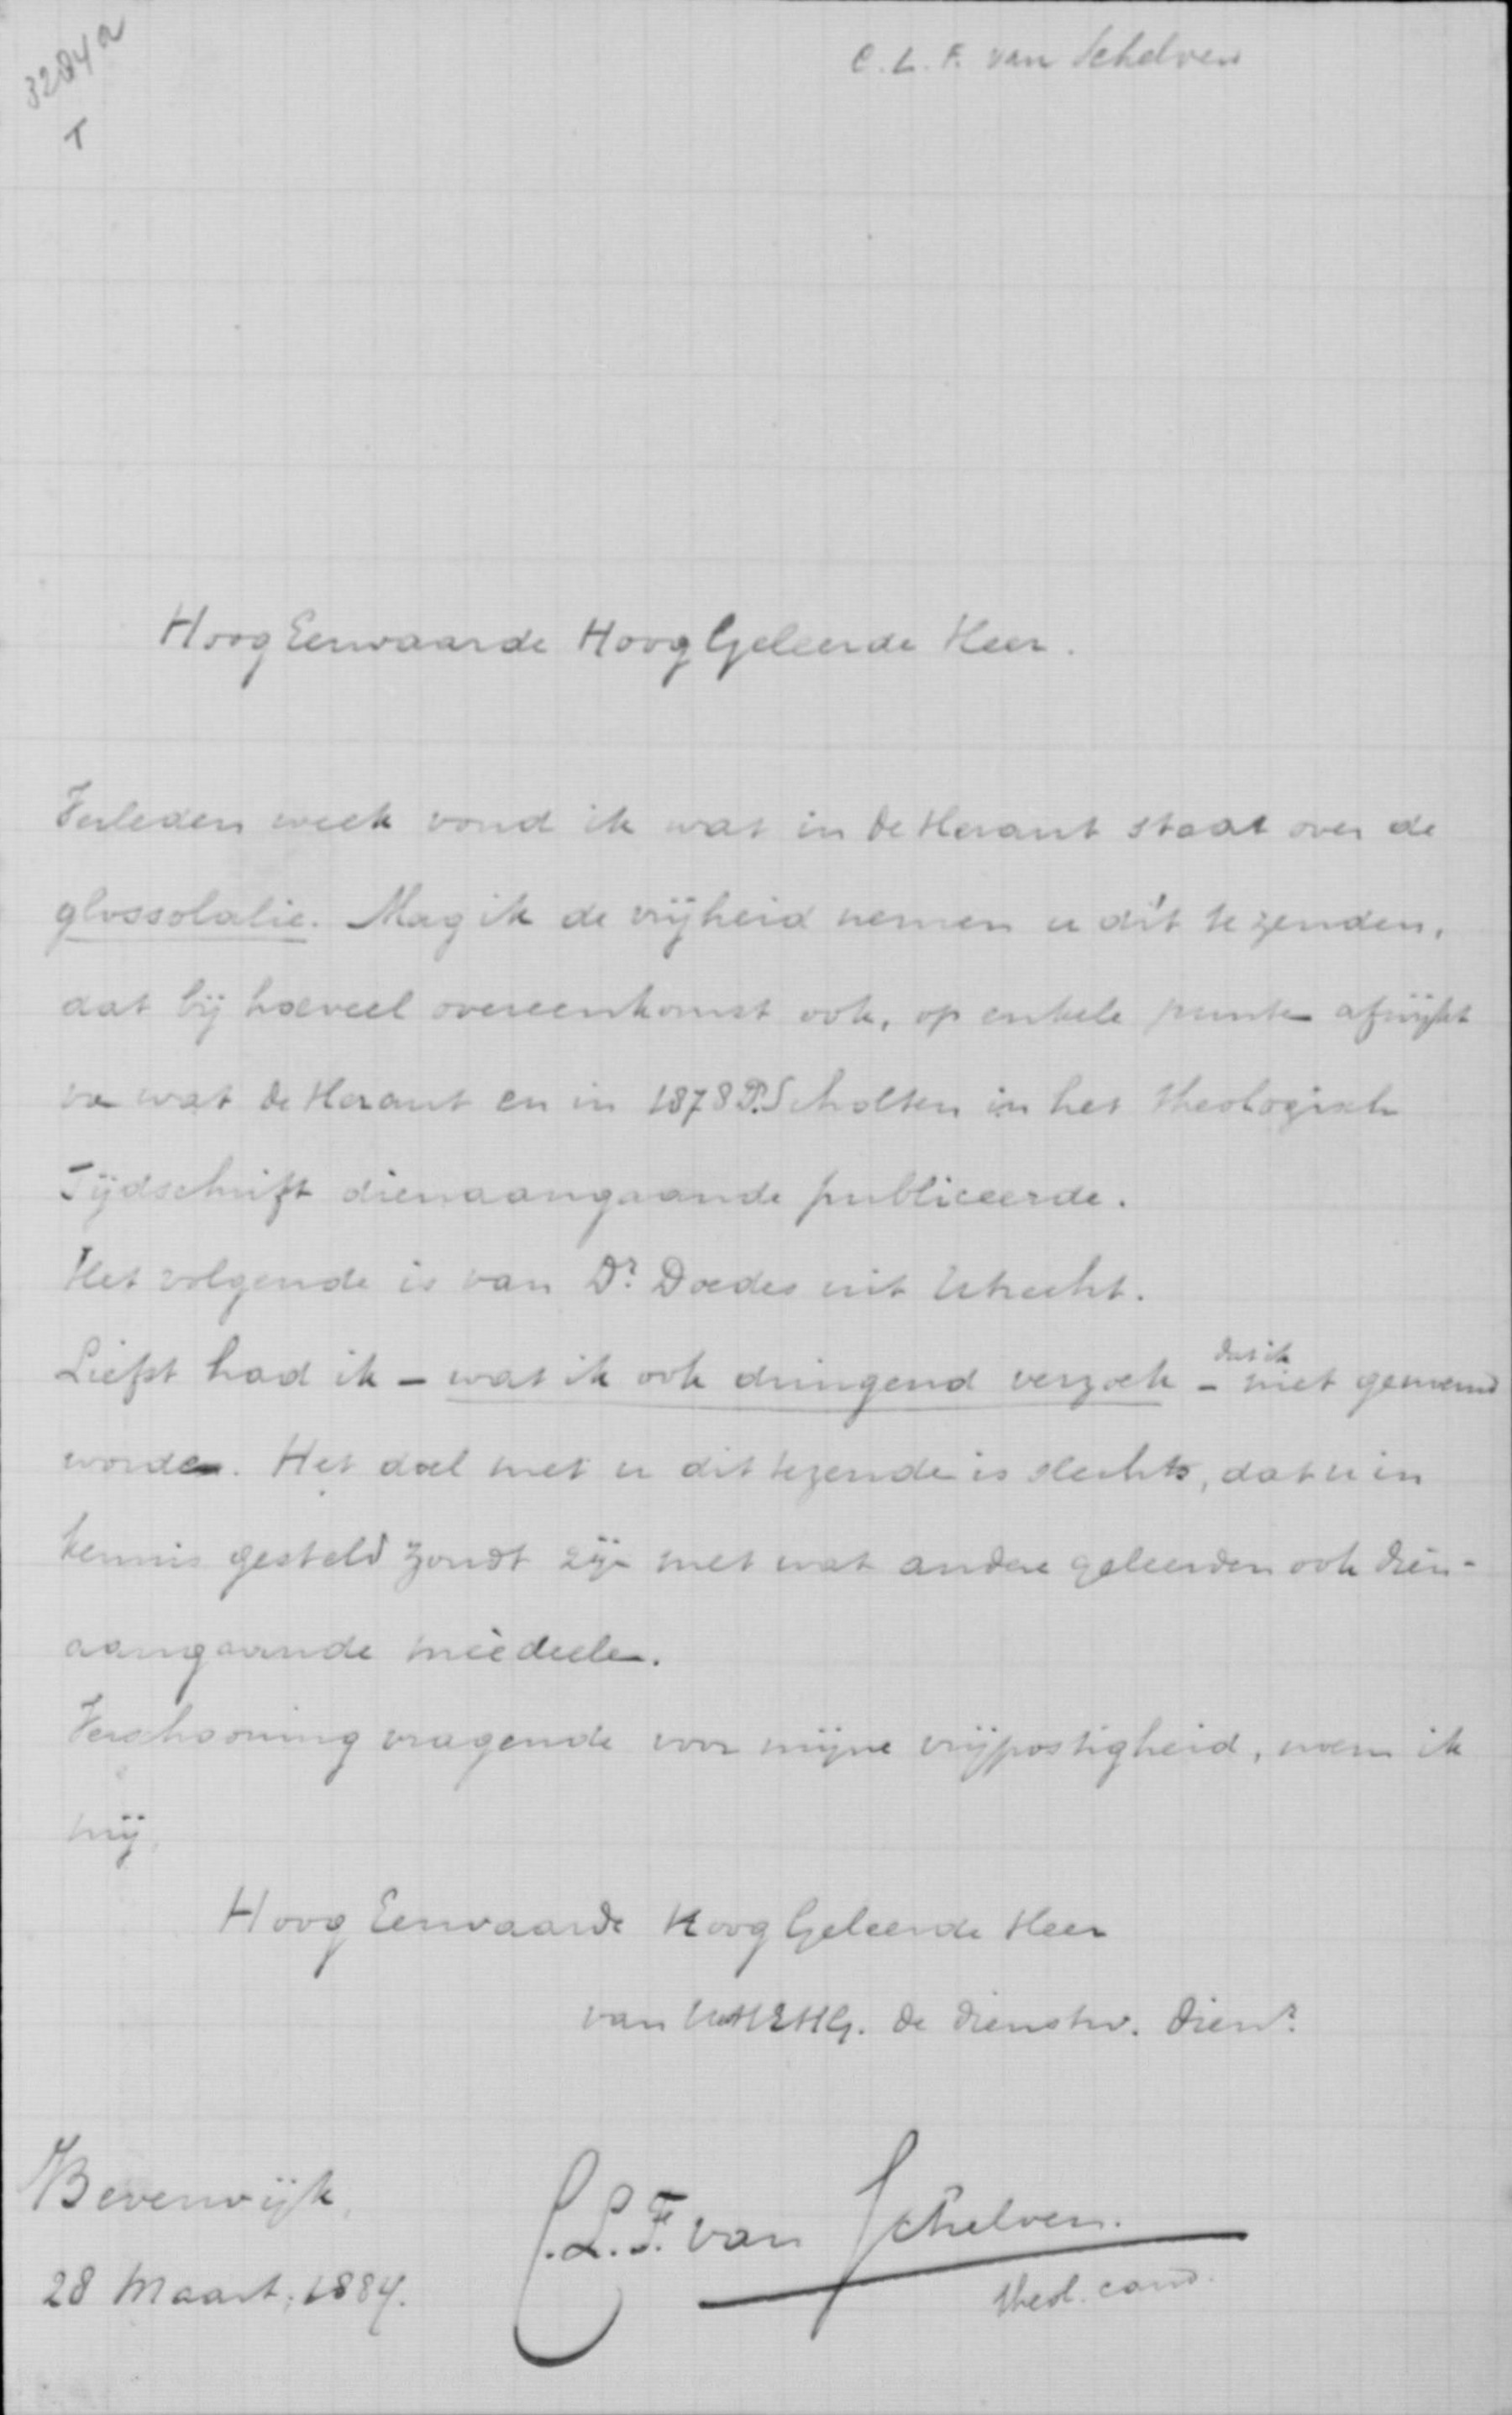 3284a
T
C. L. F. van Schelven
HoogEerwaarde HoogGeleerde Heer.
Verleden week vond ik wat in de Heraut staat over de
glossolalie. Mag ik de vrijheid nemen u dit te zenden,
dat bij hoeveel overeenkomst ook, op enkele punten afwijkt
van wat de Heraut en in 1878 Scholten in het Theologisch
Tijdschrift dienaangaande publiceerde.
Het volgende is van Dr. Doedes uit Utrecht.
Liefst had ik – wat ik ook dringend verzoek – dat ik niet genoemd
worden. Het doel met u dit te zenden is slechts, dat u in
kennis gesteld zoudt zijn met wat andere geleerden ook dien-
aangaande meêdeelen.
Verschooning vragende voor mijne vrijpostigheid, noem ik
mij,
Hoog Eerwaarde HoogGeleerde Heer
van UwHEHG. de dienstw. dienr.
Beverwijk,
28 Maart, 1884.
C.L.F. van Schelven.
theol. cand.